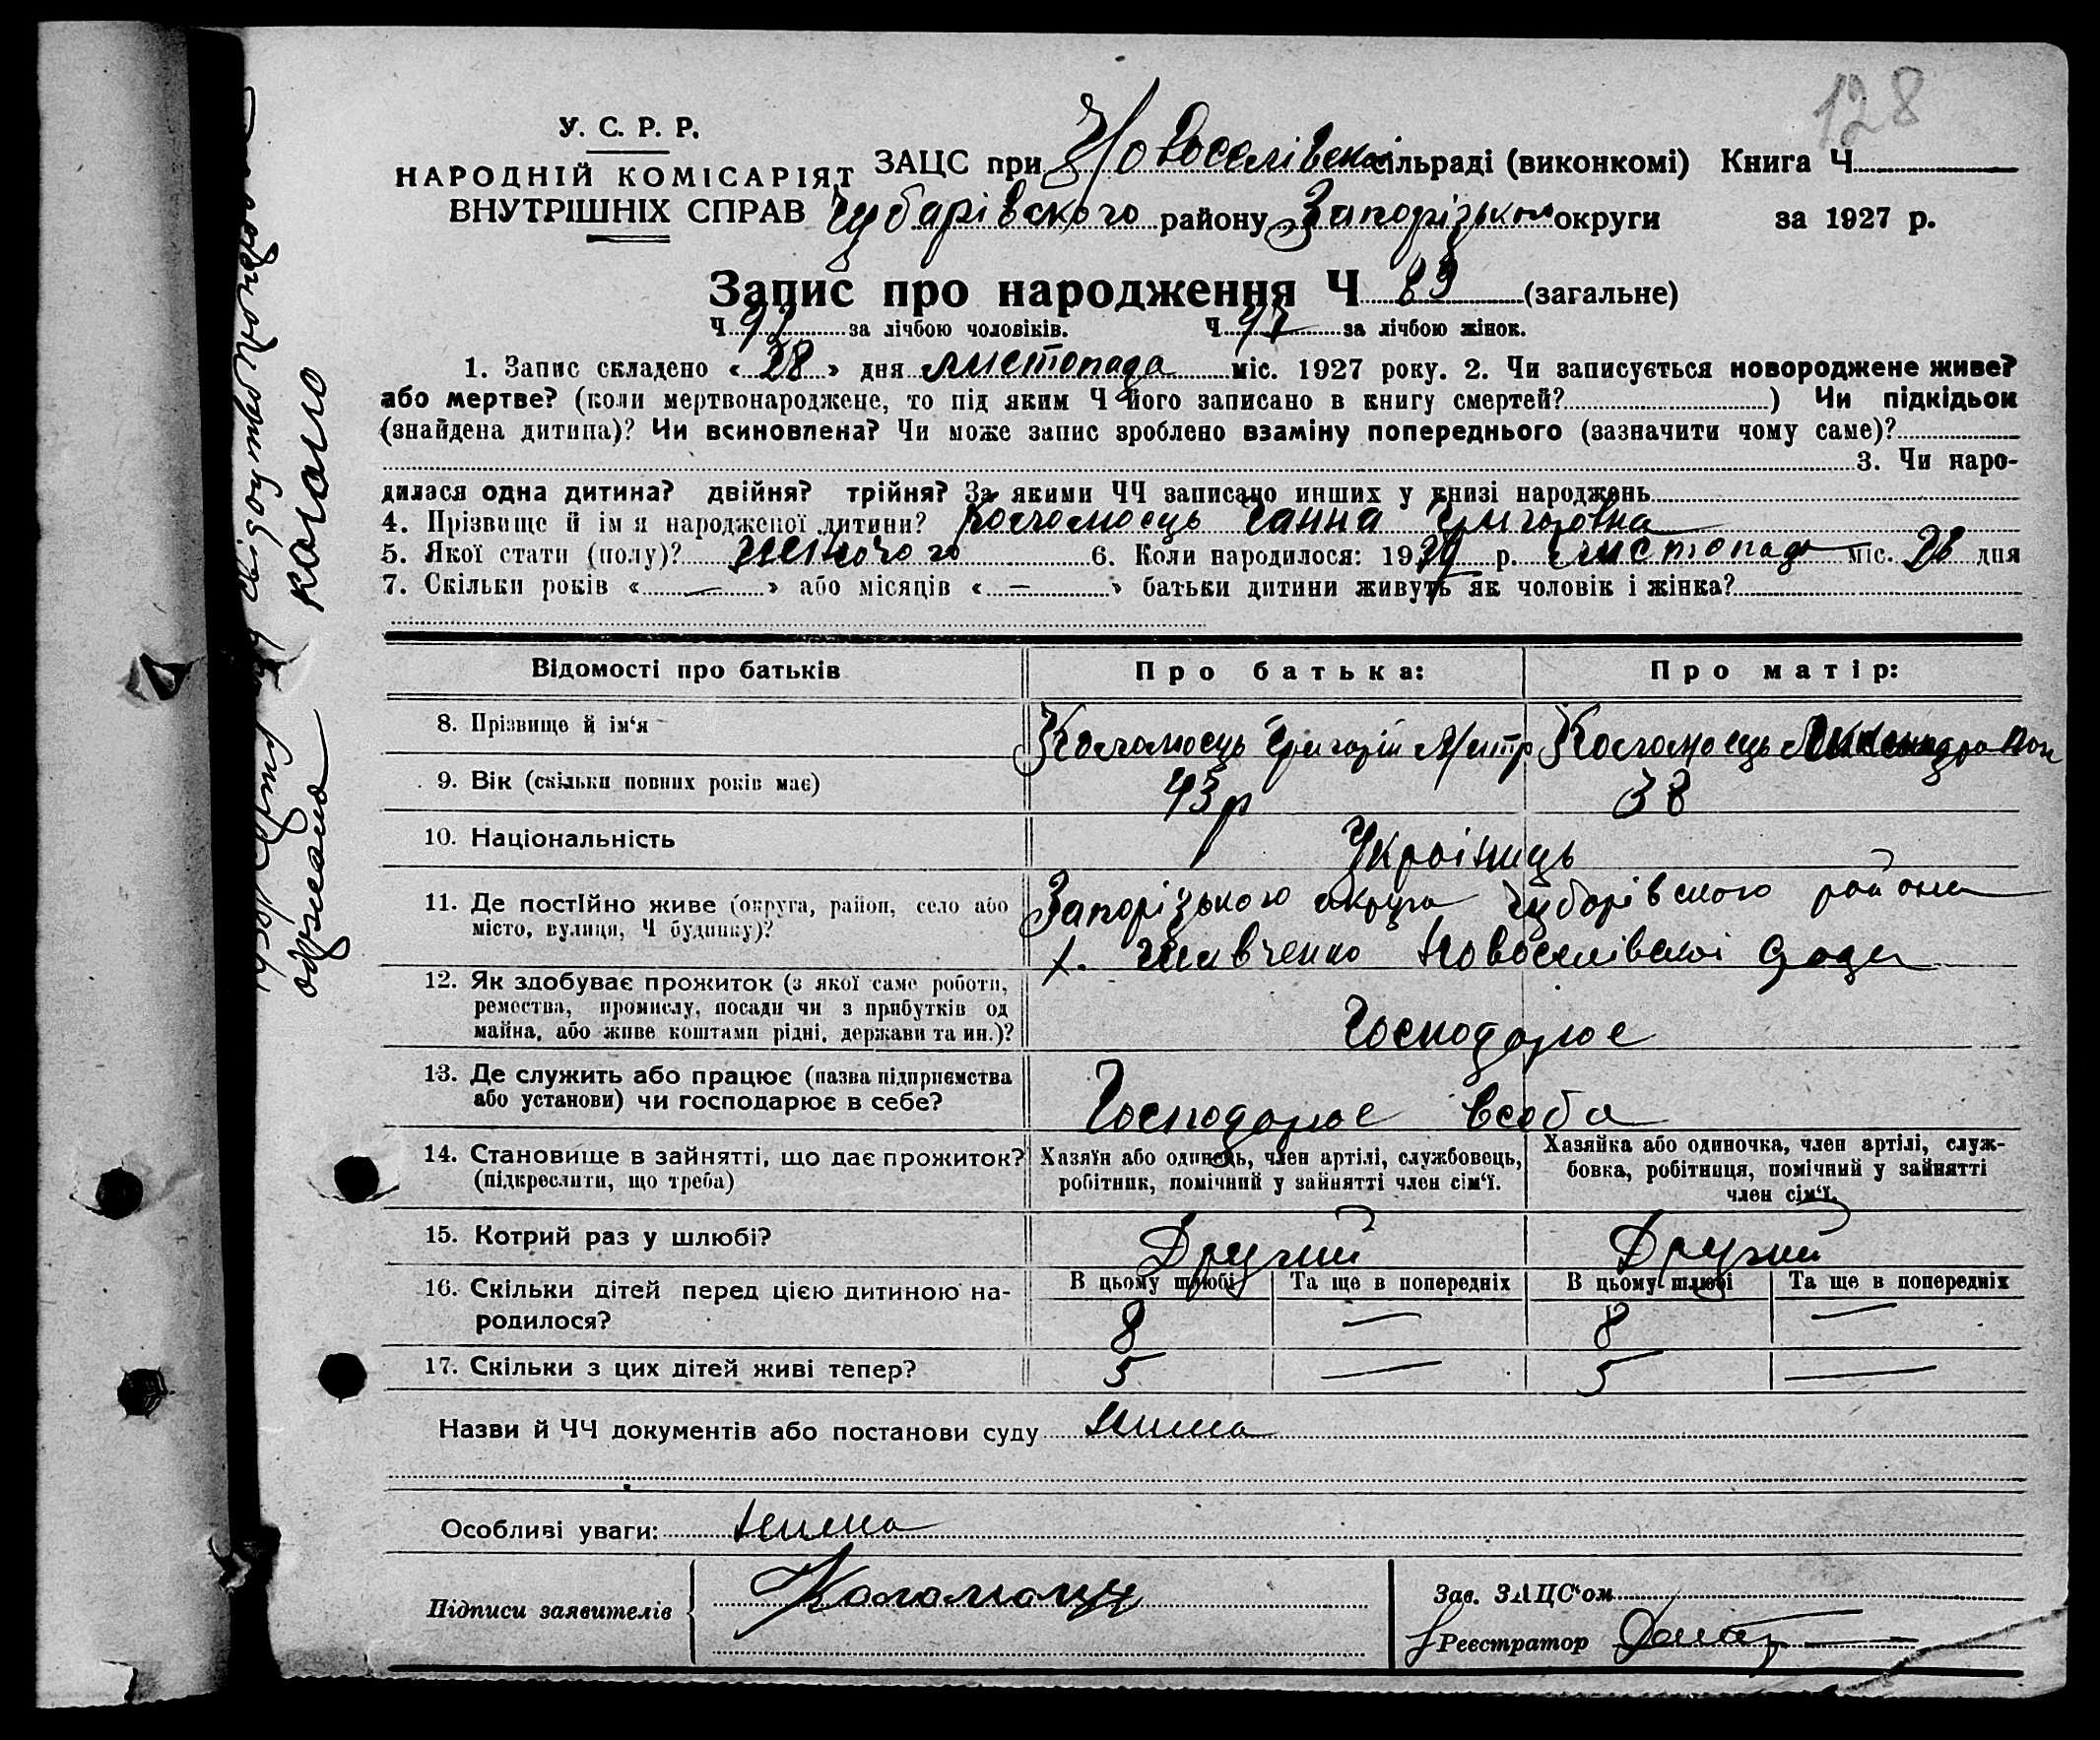 128
У. С. Р. Р.
НАРОДНІЙ КОМІСАРІЯТ
ВНУТРІШНІХ СПРАВ
ЗАЦС при Новоселівській сільраді (виконкомі) Книга Ч
Чубарівского району Запорізької округи за 1927 р.
Запис про народження Ч 89 (загальне)
Ч за лічбою чоловіків. Ч 47 за лічбою жінок.
1. Запис складено « 28 » дня листопада міс. 1927 року. 2. Чи записується новороджене живе?
або мертве? (коли мертвонароджене, то під яким Ч його записано в книгу смертей? ) Чи підкідьок
(знайдена дитина)? Чи всиновлена? Чи може запис зроблено взаміну попереднього (зазначити чому саме)?
3. Чи наро-
дилася одна дитина? двійня? трійня? За якими ЧЧ записано инших у книзі народжень
4. Прізвище й ім я народженої дитини? Коломоець Ганна Григоровна
5. Якої стати (полу)? жіночого 6. Коли народилося: 19 р. листопада міс. 28 дня
7. Скільки років « — » або місяців « — » батьки дитини живуть як чоловік і жінка?
Відомості про батьків
Про батька:
Про матір:
8. Прізвище й ім‘я
Коломоець Григорій Митр
Коломоець
9. Вік (скільки повних років має)
43 р
38
10. Національність
Украінець
11. Де постійно живе (округа, район, село або
місто, вулиця, Ч будинку)?
Запорізького округа Чубарівского района
х. Шевченко Новоселівскоі
12. Як здобуває прожиток (з якої саме роботи,
ремества, промислу, посади чи з прибутків од
майна, або живе коштами рідні, держави та ин.)?
Господорює
13. Де служить або працює (назва підприємства
або установи) чи господарює в себе?
Господорює всоба
14. Становище в зайнятті, що дає прожиток?
(підкреслити, що треба)
Хазяїн або одинець, член артілі, службовець,
робітник, помічний у зайнятті член сім‘ї.
Хазяйка або одиночка, член артілі, служ-
бовка, робітниця, помічний у зайнятті
член сім‘ї.
15. Котрий раз у шлюбі?
Другий
Другий
16. Скільки дітей перед цією дитиною на-
родилося?
В цьому шлюбі Та ще в попередніх В цьому шлюбі Та ще в попередніх
8 — 8 —
17. Скільки з цих дітей живі тепер?
5 — 5 —
Назви й ЧЧ документів або постанови суду нима
Особливі уваги: нима
Підписи заявителів
Коломоец
Зав. ЗАЦС‘ом
Реєстратор
копию
одержала